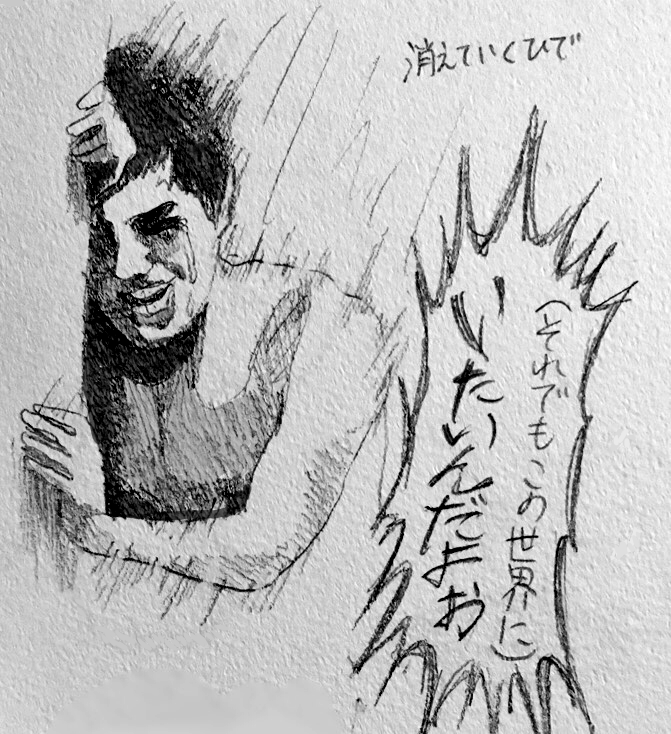 消えていくひで
(それでもこの世界に)
いたいんだよお